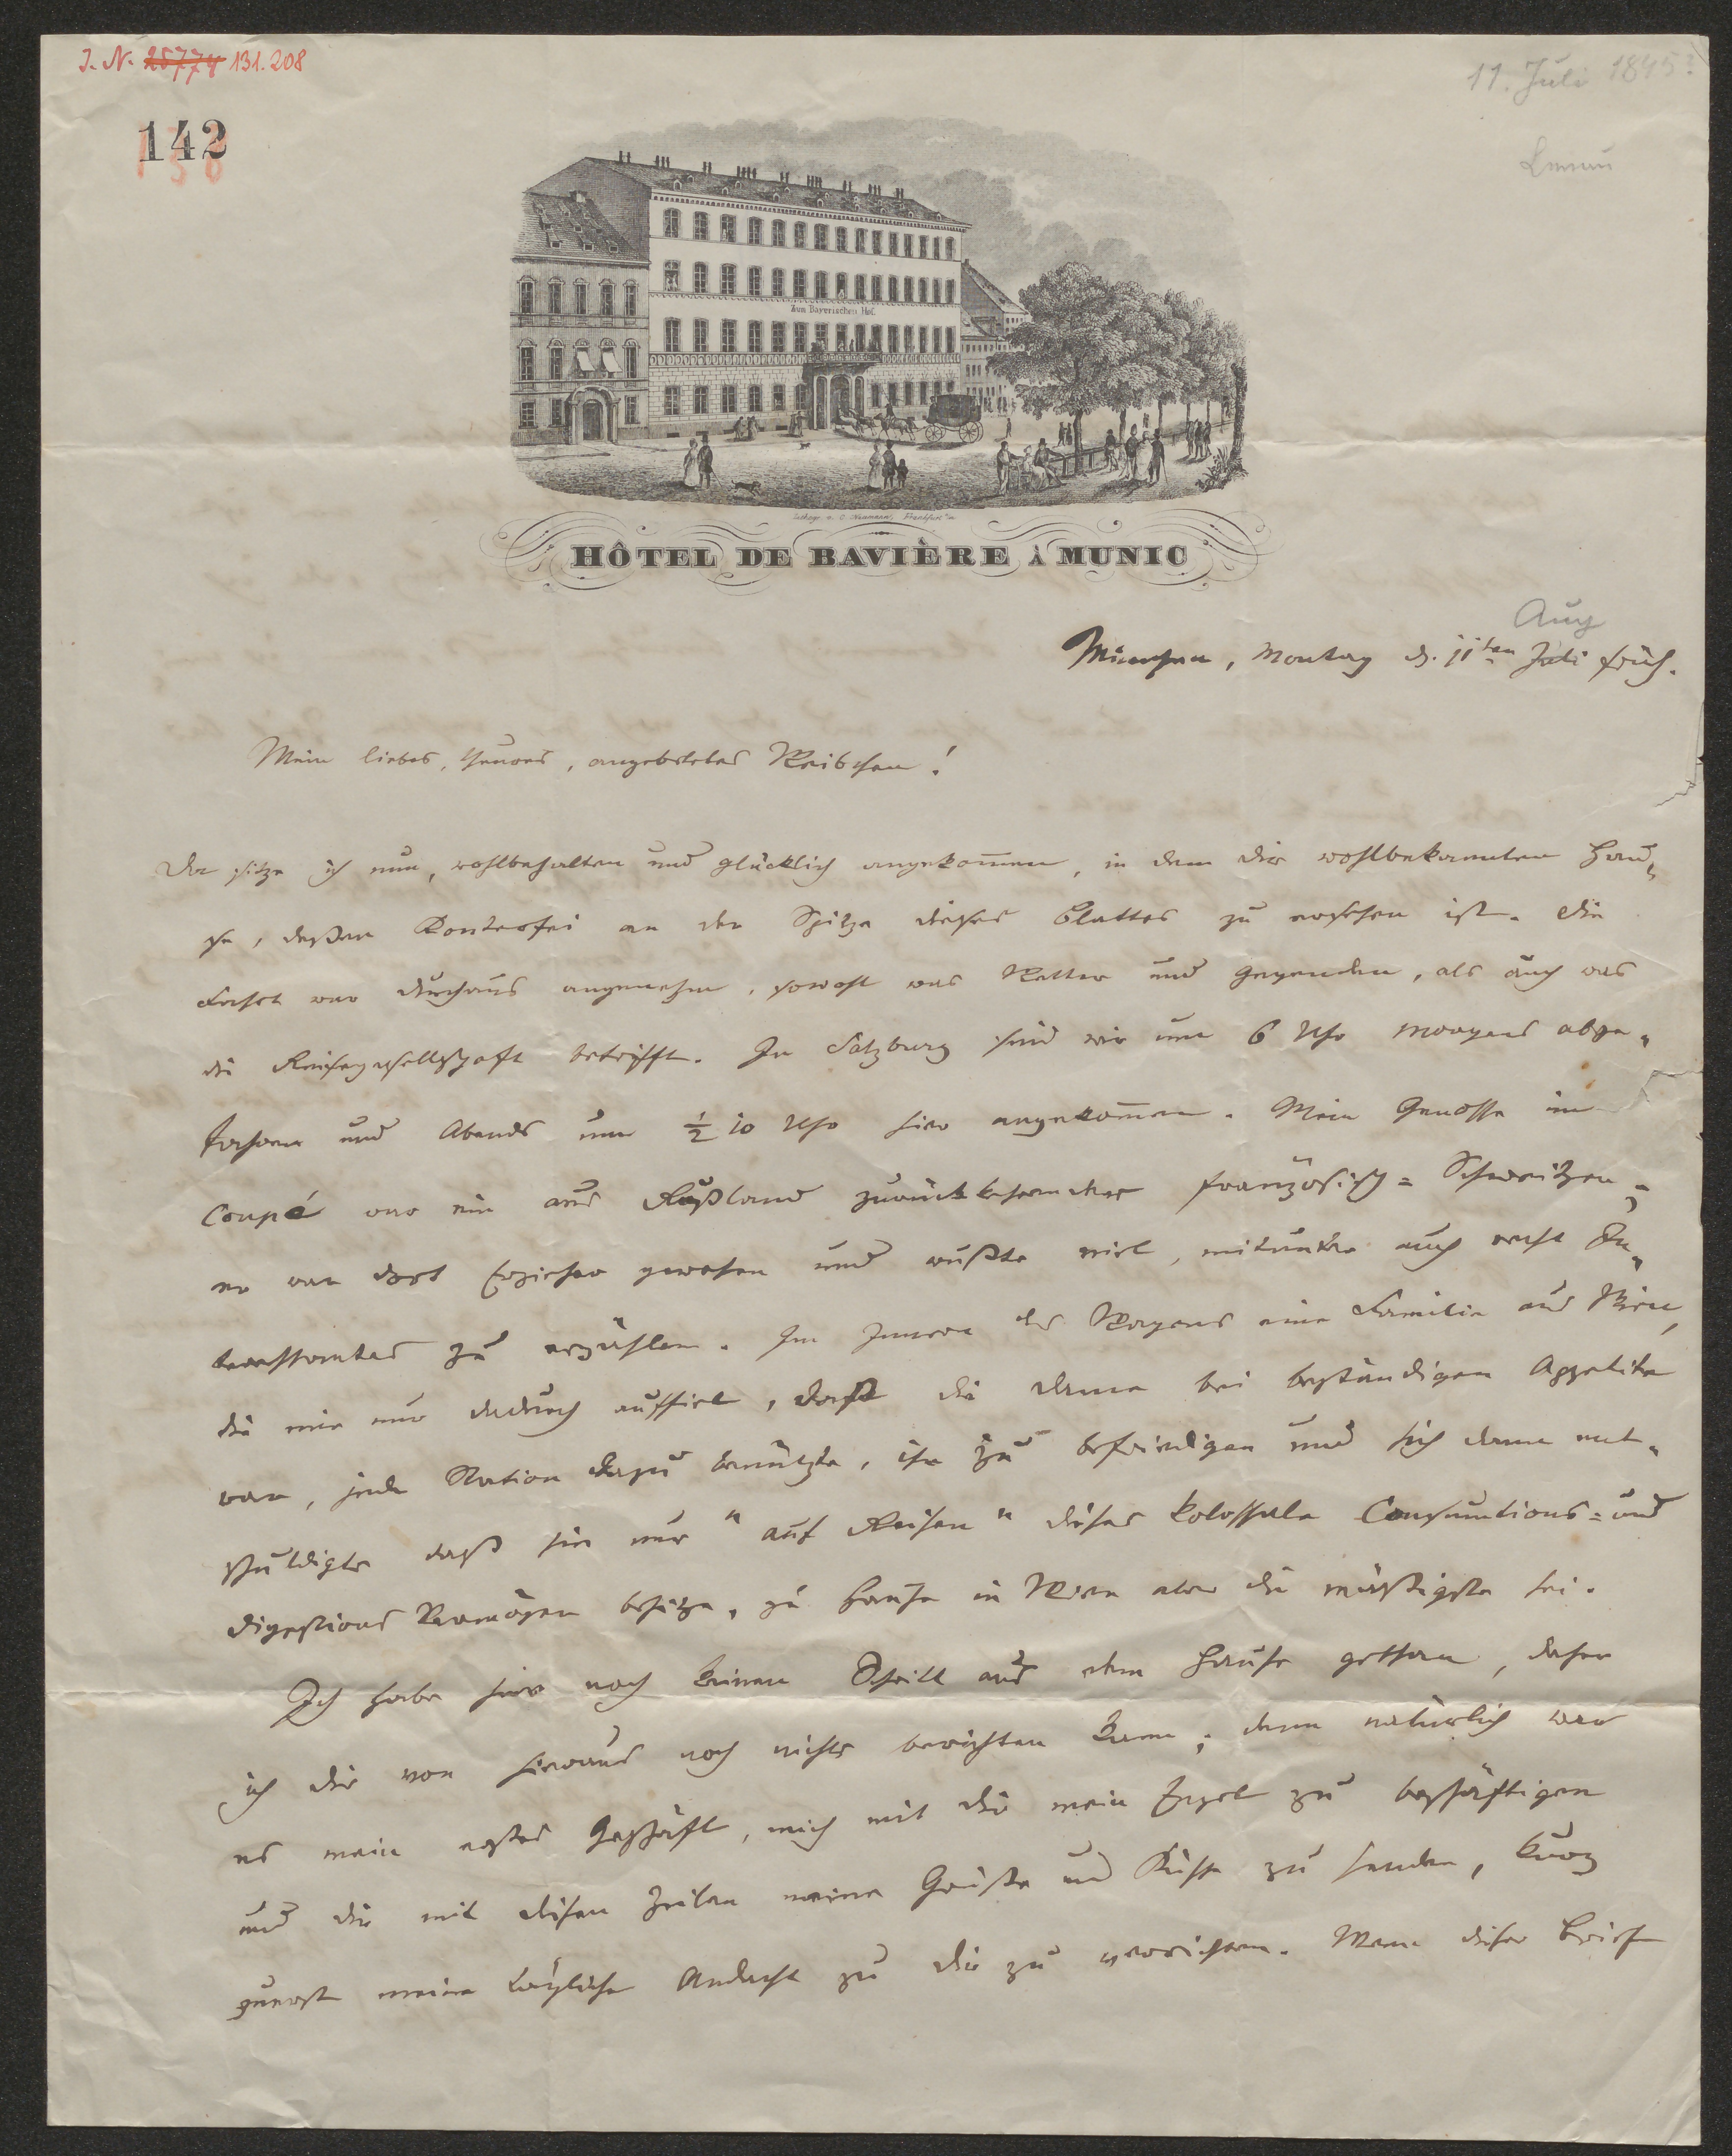 J. N. 25774 131.208
11. Juli 1845?
142
Zum Bayerischen Hof.
HÔTEL DE BAVIÈRE À MUNIC
Aug
München, Montag d. 11ten Juli früh.
Mein liebes, theures, angebetetes Weibchen!
Da sitze ich nun, wohlbehalten und glücklich angekom̄en, in dem Dir wohlbekannten Hau-
se, deßen Konterfei an der Spitze dieses Blattes zu ersehen ist. Die
Fahrt war durchaus angenehm, sowohl was Wetter und Gegenden, als auch was
die Reisegesellschaft betrifft. In Salzburg sind wir um 6 Uhr Morgens abge-
fahren und Abends um ½ 10 Uhr hier angekom̄en. Mein Genosse im
Coupé war ein aus Rußland zurückkehrender französisch-Schweitzer;
er war dort Erzieher gewesen und wußte viel, mitunter auch recht In-
teressantes zu erzählen. Im Innern des Wagens eine Familie aus Wien,
die mir nur dadurch auffiel, daß die Dame bei beständigem Appetite
war, jede Station dazu benützte, ihn zu befriedigen und sich dann ent-
schuldigte daß sie nur "auf Reisen" dieses kolossale Consumtions- und
Digestions Vermögen besitze, zu Hause in Wien aber die mäßigste sei.
Ich habe hier noch keinen Schritt aus dem Hause gethan, daher
ich Dir von hieraus noch nichts berichten kann; denn natürlich war
es mein erstes Geschäft, mich mit Dir mein Engel zu beschäftigen
und Dir mit diesen Zeilen meine Grüße und Küsse zu senden, kurz
zuerst meine tägliche Andacht zu Dir zu verrichten. Wenn dieser Brief